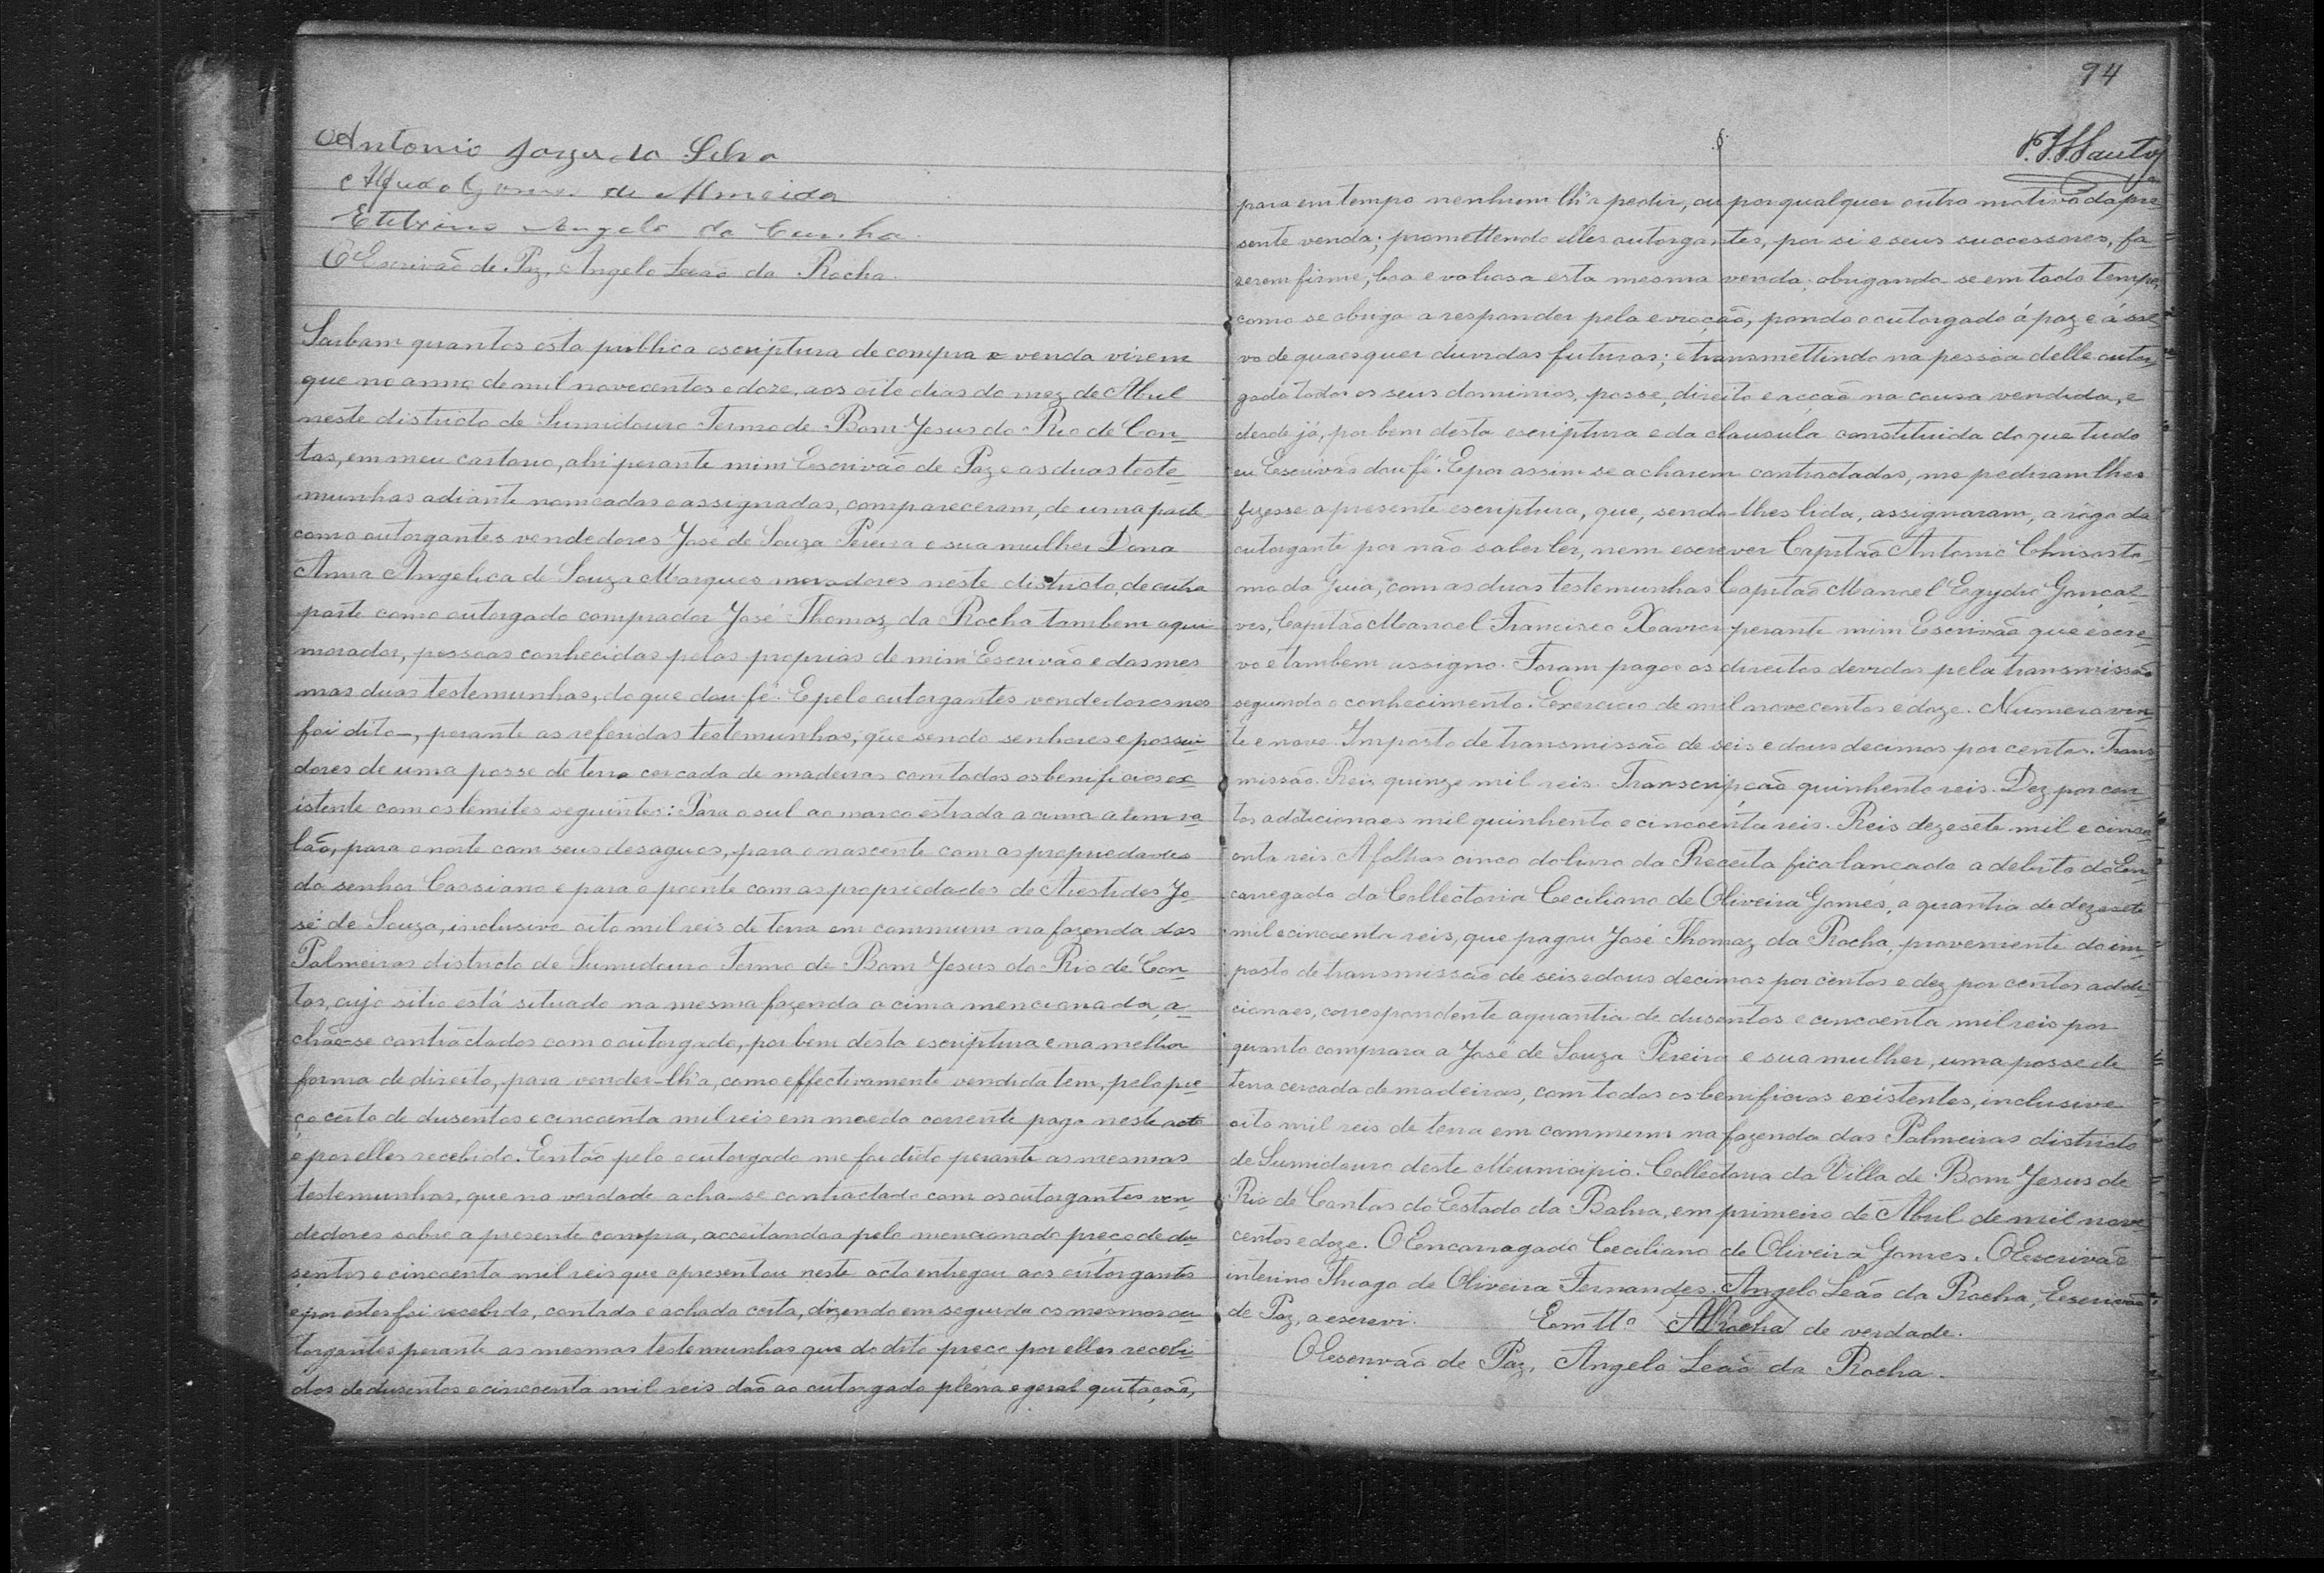 Antonio Jorge da Silva
Alfredo Gomes de Almeida
Etelvino Angelo da Cunha
O Escrivão de Paz, Angelo Leão da Rocha.
Saibam quantos esta publica escriptura de compra e venda virem
que no anno de mil novecentos e doze, aos oito dias do mez de Abril
neste districto de Sumidouro Termo de Bom Jesus do Rio de Con-
tas, em meu cartorio, ahi perante mim Escrivão de Paz e as duas teste-
munhas adiante nomeadas e assignadas, compareceram, de uma parte
como outorgantes vendedores José de Souza Pereira e sua mulher Dona
Anna Angelica de Souza Marques moradores neste districto, de outra
parte como outorgado comprador José Thomaz da Rocha tambem aqui
morador, pessoas conhecidas pelas proprias de mim Escrivão e das mes
mas duas testemunhas, do que dou fé. E pelo outorgantes vendedores nos
foi dito, perante as referidas testemunhas, que sendo senhores e possui
dores de uma posse de terra cercada de madeiras com todos os benificios ex-
istente com os limites seguintes: Para o sul ao marco estrada a cima
lão, para o norte com seus desagues, para o nascente com as propriedades
do senhor Cassiano e para o poente com as propriedades de Aristides Jo
sé de Souza, inclusive oito mil reis de terra em commum na fazenda das
Palmeiras districto de Sumidouro Termo de Bom Jesus do Rio de Con-
tas, cujo sitio está situado na mesma fazenda a cima mencionada, a-
chão-se contractados com o outorgado, por bem desta escriptura e na melhor
forma de direito, para vender-lh'a, como effectivamente vendida tem, pelo pre
ço certo de dusentos e cincoenta mil reis em moeda corrente pago neste acto
e por elles recebido. Então pelo outorgado me foi dito perante as mesmas
testemunhas, que na verdade acha-se contractado com os outorgantes ven-
dedores sobre a presente compra, acceitando-a pelo mencionado preço de du-
sentos e cincoenta mil reis que apresentou neste acto entregou aos outorgantes
e por estes foi recebido, contado e achado certo, dizendo em seguida os mesmos ou-
torgantes perante as mesmas testemunhas que do dito preço por elles recebi-
dos de dusentos e cincoenta mil reis dão ao outorgado plena e geral quitação,
94
para em tempo nenhum lh'a pedir, ou por qualquer outro motivo da pre-
sente venda; promettendo elles outorgantes, por si e seus successores, fa-
zerem firme, boa e valiosa esta mesma venda; obrigando-se em todo tempo,
como se obriga a responder pela evicção, pondo o outorgado á paz e á sal-
vo de quaesquer duvidas futuras; e transmettindo na pessoa delle outor-
gado todos os seus dominios, posse, direito e acção na cousa vendida, e
desde já, por bem desta escriptura e da clausula constituida do que tudo
eu Escrivão dou fé. E por assim se acharem contractados, me pediram lhes
fizesse a presente escriptura, que, sendo-lhes lida, assignaram, a rôgo da
outorgante por não saber ler, nem escrever Capitão Antonio Chrisosto
mo da Guia, com as duas testemunhas Capitão Manoel Egydio Gonçal-
ves, Capitão Manoel Francisco Xavier perante mim Escrivão que escre-
vo e tambem assigno. Foram pagos os direitos devidos pela transmissão
segundo o conhecimento. Exercicio de mil novecentos e doze. Numero vin-
te e nove. Imposto de transmissão de seis e dous decimos por centos. Trans
missão. Reis quinze mil reis. Transcripção quinhento reis. Dez por cen-
tos addicionaes mil quinhento e cincoenta reis. Reis dezesete mil e cinco
enta reis. A folhas cinco do livro da Receita fica lançado a debito do En-
carregado da Collectoria Ceciliano de Oliveira Gomes, a quantia de dezesete
mil e cincoenta reis, que pagou José Thomaz da Rocha, proveniente do im-
posto de transmissão de seis e dous decimos por centos e dez por centos addi-
cionaes, correspondente a quantia de dusentos e cincoenta mil reis por
quanto comprara a José de Souza Pereira e sua mulher, uma posse de
terra cercada de madeiras, com todos os benificios existentes, inclusive
oito mil reis de terra em commum na fazenda das Palmeiras districto
de Sumidouro deste Municipio. Collectoria da Villa de Bom Jesus do
Rio de Contas do Estado da Bahia, em primeiro de Abril de mil nove
centos e doze. O Encarregado Ceciliano de Oliveira Gomes. O Escrivão
interino Thiago de Oliveira Fernandes. Angelo Leão da Rocha, Escrivão
de Paz, a escrevi. Em tt.o ALRocha de verdade.
O Escrivão de Paz, Angelo Leão da Rocha.